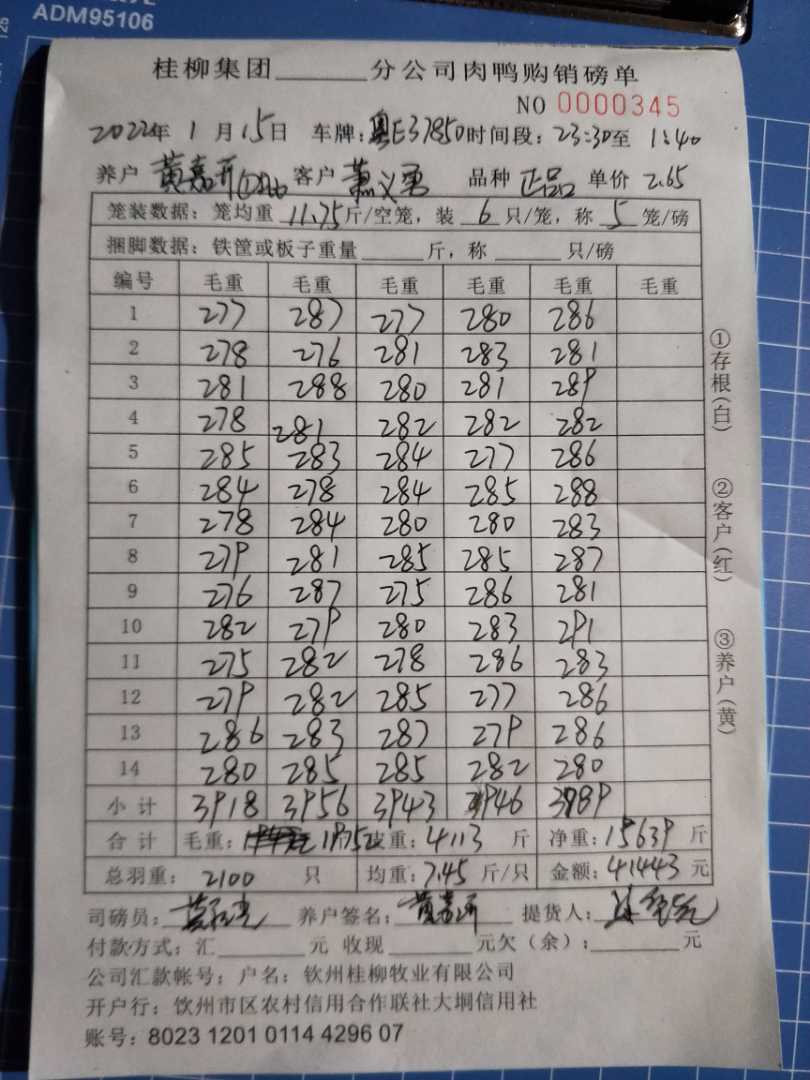 ADM95106
桂柳集团______分公司肉鸭购销磅单
NO 0000345
2022年 1 月 15日 车牌:粤E37850 时间段:23:30至 1:40
养户 黄嘉 客户 萧义勇 品种 正品 单价 2.65
笼装数据:笼均重 11.75 斤/空笼,装 6 只/笼,称 5 笼/磅
捆脚数据:铁筐或板子重量______斤,称______只/磅
编号 毛重 毛重 毛重 毛重 毛重 毛重
1 277 287 277 280 286
2 278 276 281 283 281
3 281 288 280 281 289
4 278 281 282 282 282
5 285 283 284 277 286
6 284 278 284 285 288
7 278 284 280 280 283
8 279 281 285 285 287
9 276 287 275 286 281
10 282 279 280 283 291
11 275 282 278 286 283
12 279 282 285 277 286
13 286 283 287 279 286
14 280 285 285 282 280
小计 3918 3956 3943 3946 3989
合计 毛重:19752 皮重:4113 斤 净重:15639 斤
总羽重:2100 只 均重:7.45 斤/只 金额:41443 元
司磅员: 养户签名:黄嘉 提货人:
付款方式:汇______元 收现______元欠(余):______元
公司汇款帐号:户名:钦州桂柳牧业有限公司
开户行:钦州市区农村信用合作联社大垌信用社
账号:8023 1201 0114 4296 07
①存根(白)
②客户(红)
③养户(黄)